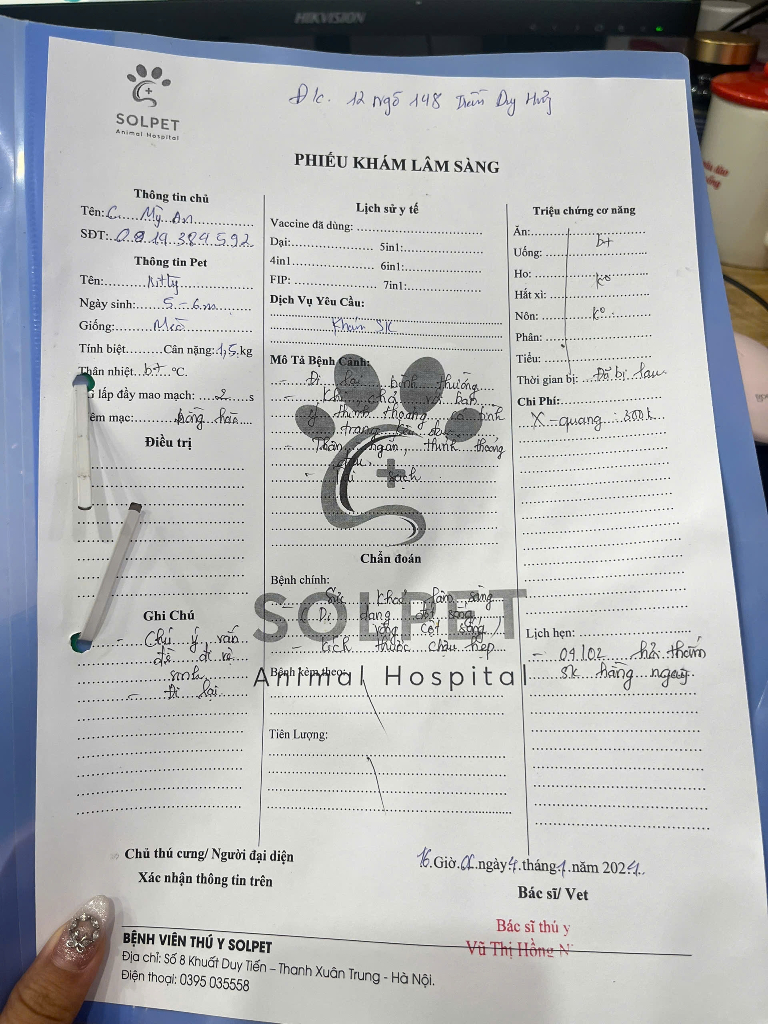 HIKVISION
SOLPET
Animal Hospital
Đ/c. 12 ngõ 148 Trần Duy Hưng
PHIẾU KHÁM LÂM SÀNG
Thông tin chủ
Tên: C. Mỹ An
SĐT: 0819.384.592
Thông tin Pet
Tên: Kitty
Ngày sinh: 5-6m
Giống: Mèo
Tính biệt Cân nặng: 1,5 kg
Thân nhiệt bt °C.
lấp đầy mao mạch: 2 s
êm mạc: hồng hào
Điều trị
Ghi Chú
Chú ý vấn
đề đi vệ
sinh
- Đi lại
Lịch sử y tế
Vaccine đã dùng:
Dại: 5in1:
4in1 6in1:
FIP: 7in1:
Dịch Vụ Yêu Cầu:
Khám SK
Mô Tả Bệnh Cảnh:
- Đi lại bình thường
- Khi chơi với bạn
ý thỉnh thoảng có tình
trạng kêu
- Thân ngắn, thỉnh thoảng
sạch
Chẩn đoán
Bệnh chính:
Sức khoẻ lâm sàng
- Dị dạng đốt sống
vòng cột sống
- kích thước chậu hẹp
SOLPET
Animal Hospital
Bệnh kèm theo:
Tiên Lượng:
Triệu chứng cơ năng
Ăn:
bt
Uống:
Ho:
Ko
Hắt xì:
Nôn: Ko
Phân:
Tiểu:
Thời gian bị: Đã bị lâu
Chi Phí:
X-quang: 300k
Lịch hẹn:
- 09/02 hỏi thăm
SK hằng ngày
Chủ thú cưng/ Người đại diện
Xác nhận thông tin trên
16.Giờ ngày 4 tháng 1 năm 2024
Bác sĩ/ Vet
Bác sĩ thú y
Vũ Thị Hồng
BỆNH VIỆN THÚ Y SOLPET
Địa chỉ: Số 8 Khuất Duy Tiến – Thanh Xuân Trung - Hà Nội.
Điện thoại: 0395 035558